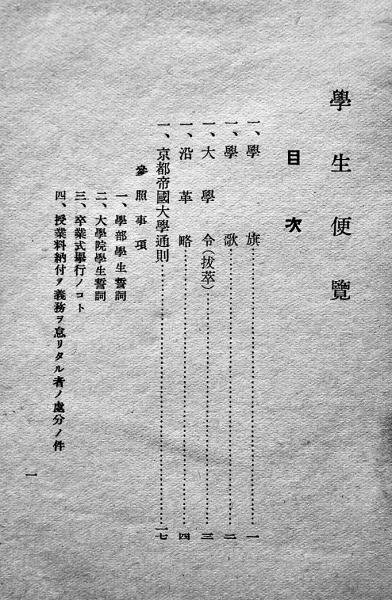 學生便覽
目次
一、學旗……一
一、學歌……二
一、大學令(拔萃)……三
一、沿革略……四
一、京都帝國大學通則……一七
參照事項
一、學部學生誓詞
二、大學院學生誓詞
三、卒業式擧行ノコト
四、授業料納付ヲ義務ヲ怠リタル者ノ處分ノ件
一